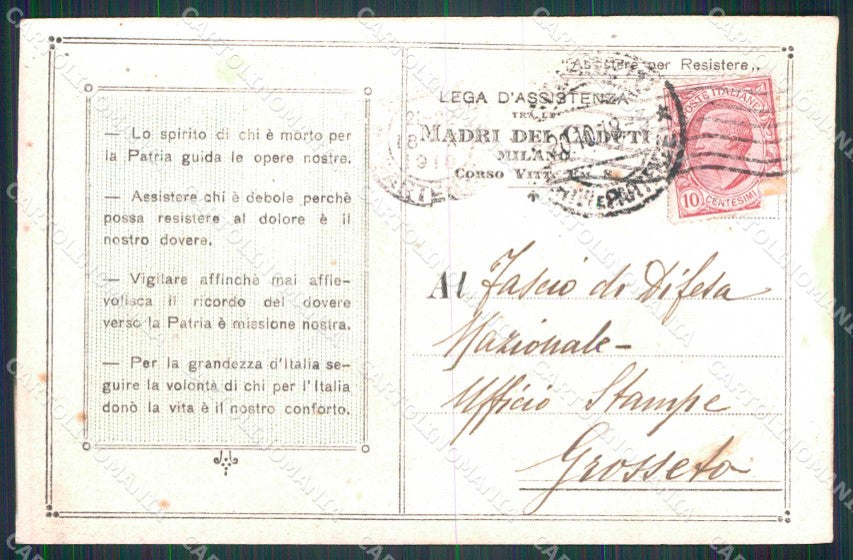 — Lo spirito di chi è morto per
la Patria guida le opere nostre.
— Assistere chi è debole perchè
possa resistere al dolore è il
nostro dovere.
— Vigilare affinchè mai affie-
volisca il ricordo del dovere
verso la Patria è missione nostra.
— Per la grandezza d'Italia se-
guire la volontà di chi per l'Italia
donò la vita è il nostro conforto.
Assistere per Resistere
LEGA D'ASSISTENZA
TRA LE
MADRI DEI CADUTI
MILANO
CORSO VITT. EM. 8
POSTE ITALIANE
10 CENTESIMI
Al Fascio di Difesa
Nazionale-
Ufficio Stampe
Grosseto
CARTOLINOMANIA